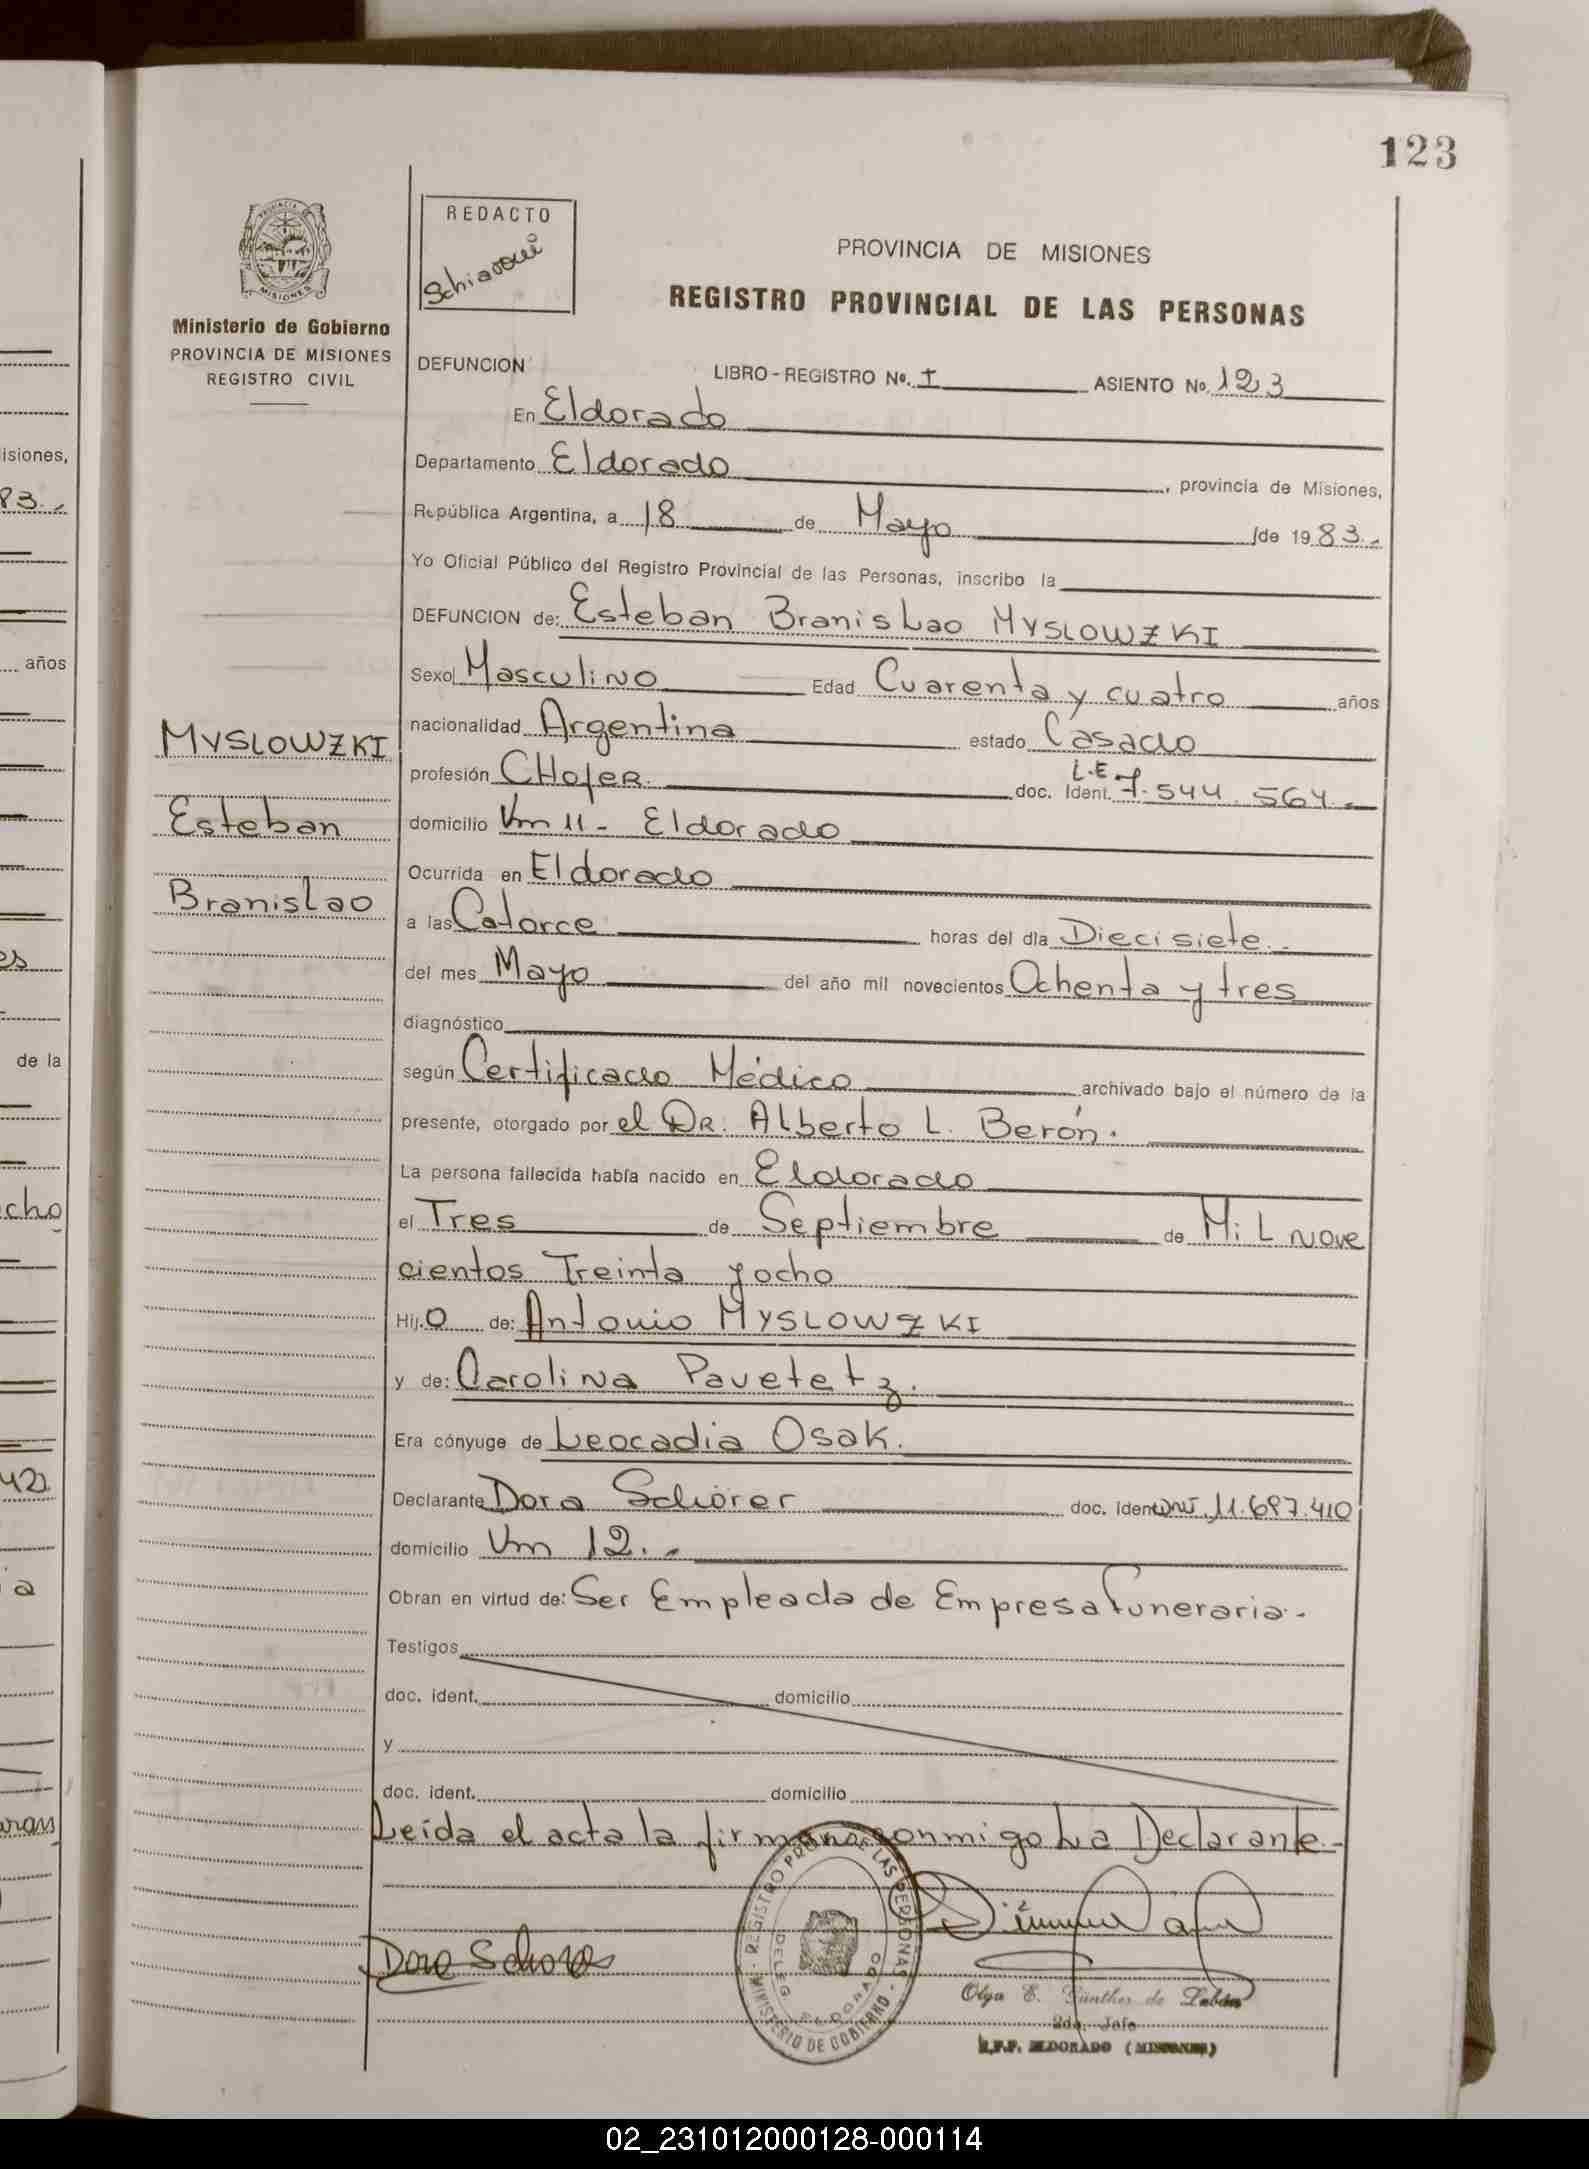 123
REDACTO
Schiavoni
PROVINCIA DE MISIONES
REGISTRO PROVINCIAL DE LAS PERSONAS
PROVINCIA DE
MISIONES
Ministerio de Gobierno
PROVINCIA DE MISIONES
REGISTRO CIVIL
DEFUNCION
LIBRO-REGISTRO Nº. I ASIENTO Nº. 123
En Eldorado
Departamento Eldorado, provincia de Misiones,
República Argentina, a 18 de Mayo de 1983.-
Yo Oficial Público del Registro Provincial de las Personas, inscribo la
DEFUNCION de: Esteban Branislao MYSLOWZKI
Sexo Masculino Edad Cuarenta y cuatro años
nacionalidad Argentina estado Casado
profesión CHofeR. doc. Ident. L.E 7.544.564.-
domicilio Km 11 - Eldorado
Ocurrida en Eldorado
a las Catorce horas del día Diecisiete.-
del mes Mayo del año mil novecientos Ochenta y tres
diagnóstico
según Certificado Médico archivado bajo el número de la
presente, otorgado por el DR. Alberto L. Berón.
La persona fallecida había nacido en Eldorado
el Tres de Septiembre de Mil nove
cientos Treinta y ocho
Hij.o de: Antonio MYSLOWZKI
y de: Carolina Pavetetz.
Era cónyuge de Leocadia Osak.
Declarante Dora Schörer doc. iden DNI. 11.697.410
domicilio Km 12.-
Obran en virtud de: Ser Empleada de Empresa Funeraria.-
Testigos
doc. ident. domicilio
y
doc. ident. domicilio
Leída el acta la firmana conmigo La Declarante.-
MYSLOWZKI
Esteban
Branislao
Dora Schorer
REGISTRO PROV. DE LAS PERSONAS
MINISTERIO DE GOBIERNO
DELEG. ELDORADO
Olga E. Günther de
2da. Jefe
R.P.P. ELDORADO (MISIONES)
isiones,
83.-
años
es
de la
cho
42
a
02_231012000128-000114